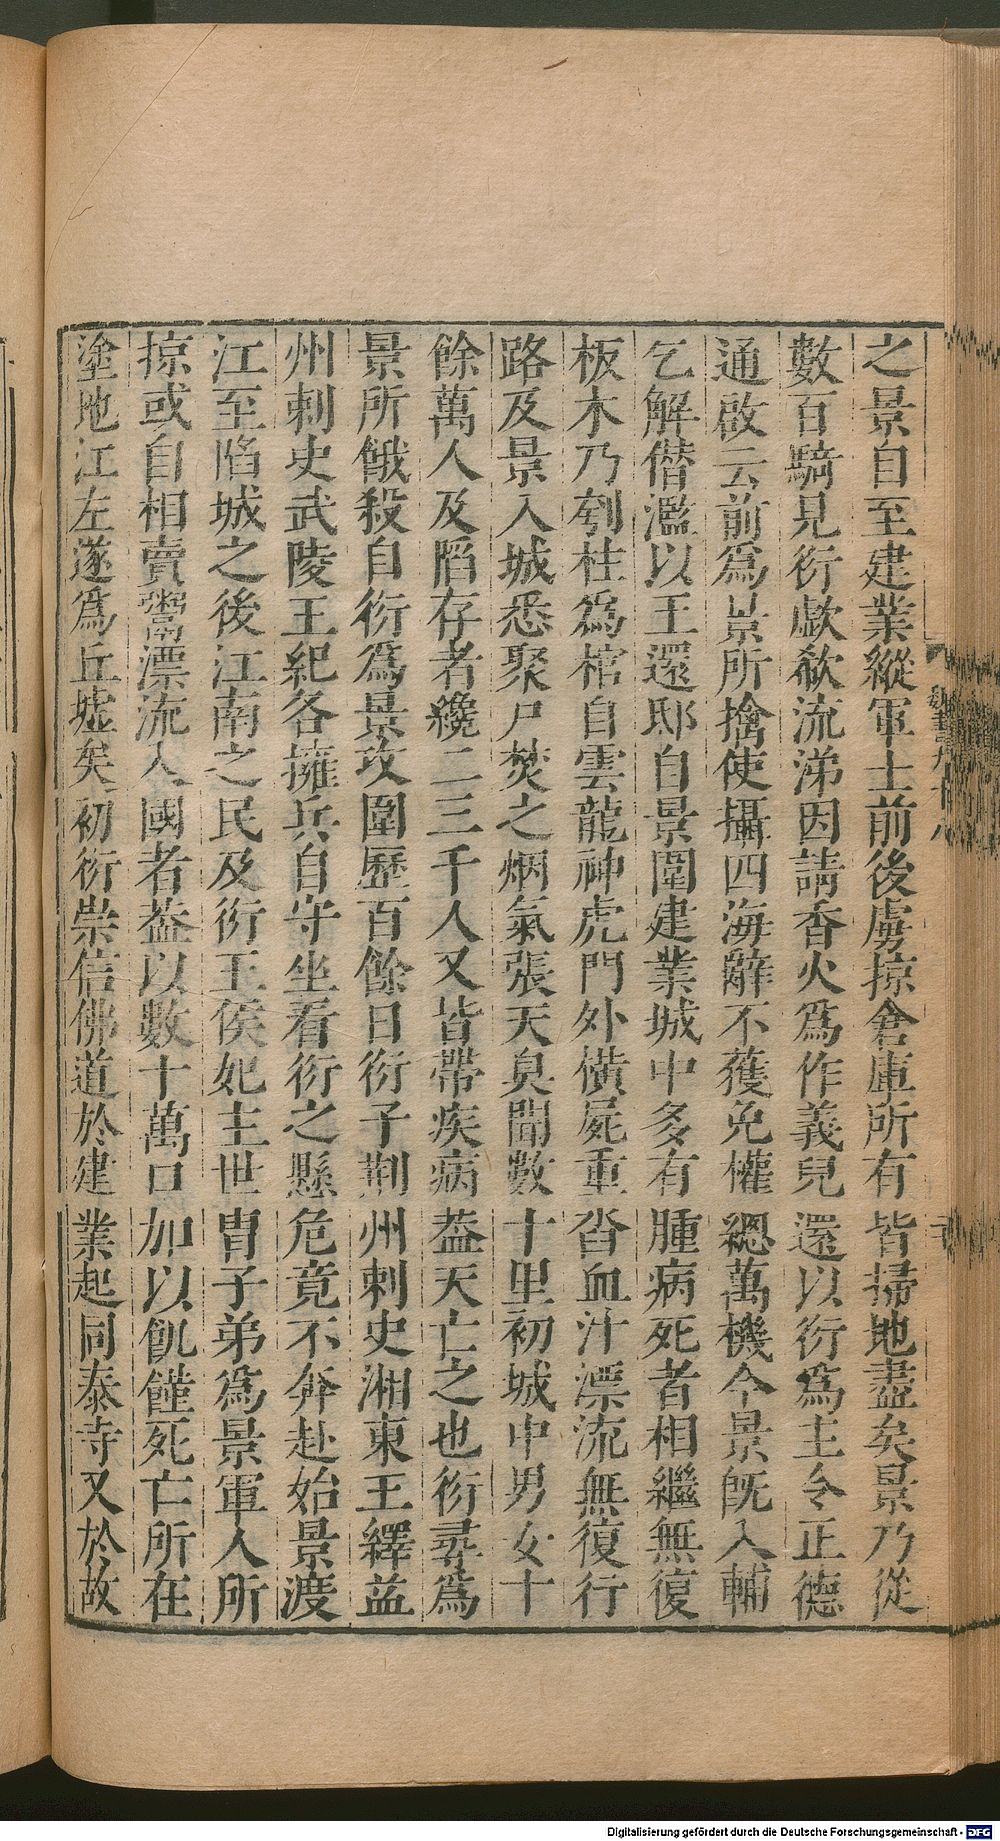 之景自至建業縱軍士前後虜掠倉庫所有皆掃地盡矣景乃從
數百騎見衍歔欷流涕因請香火爲作義兒還以衍爲主令正德
通啟云前爲景所擒使攝四海辭不獲免權總萬機今景既入輔
乞解僭濫以王還邸自景圍建業城中多有腫病死者相繼無復
板木乃刳柱爲棺自雲龍神虎門外橫屍重沓血汁漂流無復行
路及景入城悉聚尸焚之烟氣張天臭聞數十里初城中男女十
餘萬人及陷存者纔二三千人又皆帶疾病葢天亡之也衍尋爲
景所餓殺自衍爲景攻圍歷百餘日衍子荆州刺史湘東王繹益
州刺史武陵王紀各擁兵自守坐看衍之懸危竟不奔赴始景渡
江至陷城之後江南之民及衍王侯妃主世胄子弟爲景軍人所
掠或自相賣鬻漂流入國者葢以數十萬口加以飢饉死亡所在
塗地江左遂爲丘墟矣初衍崇信佛道於建業起同泰寺又於故
魏書九十八
Digitalisierung gefördert durch die Deutsche Forschungsgemeinschaft - DFG